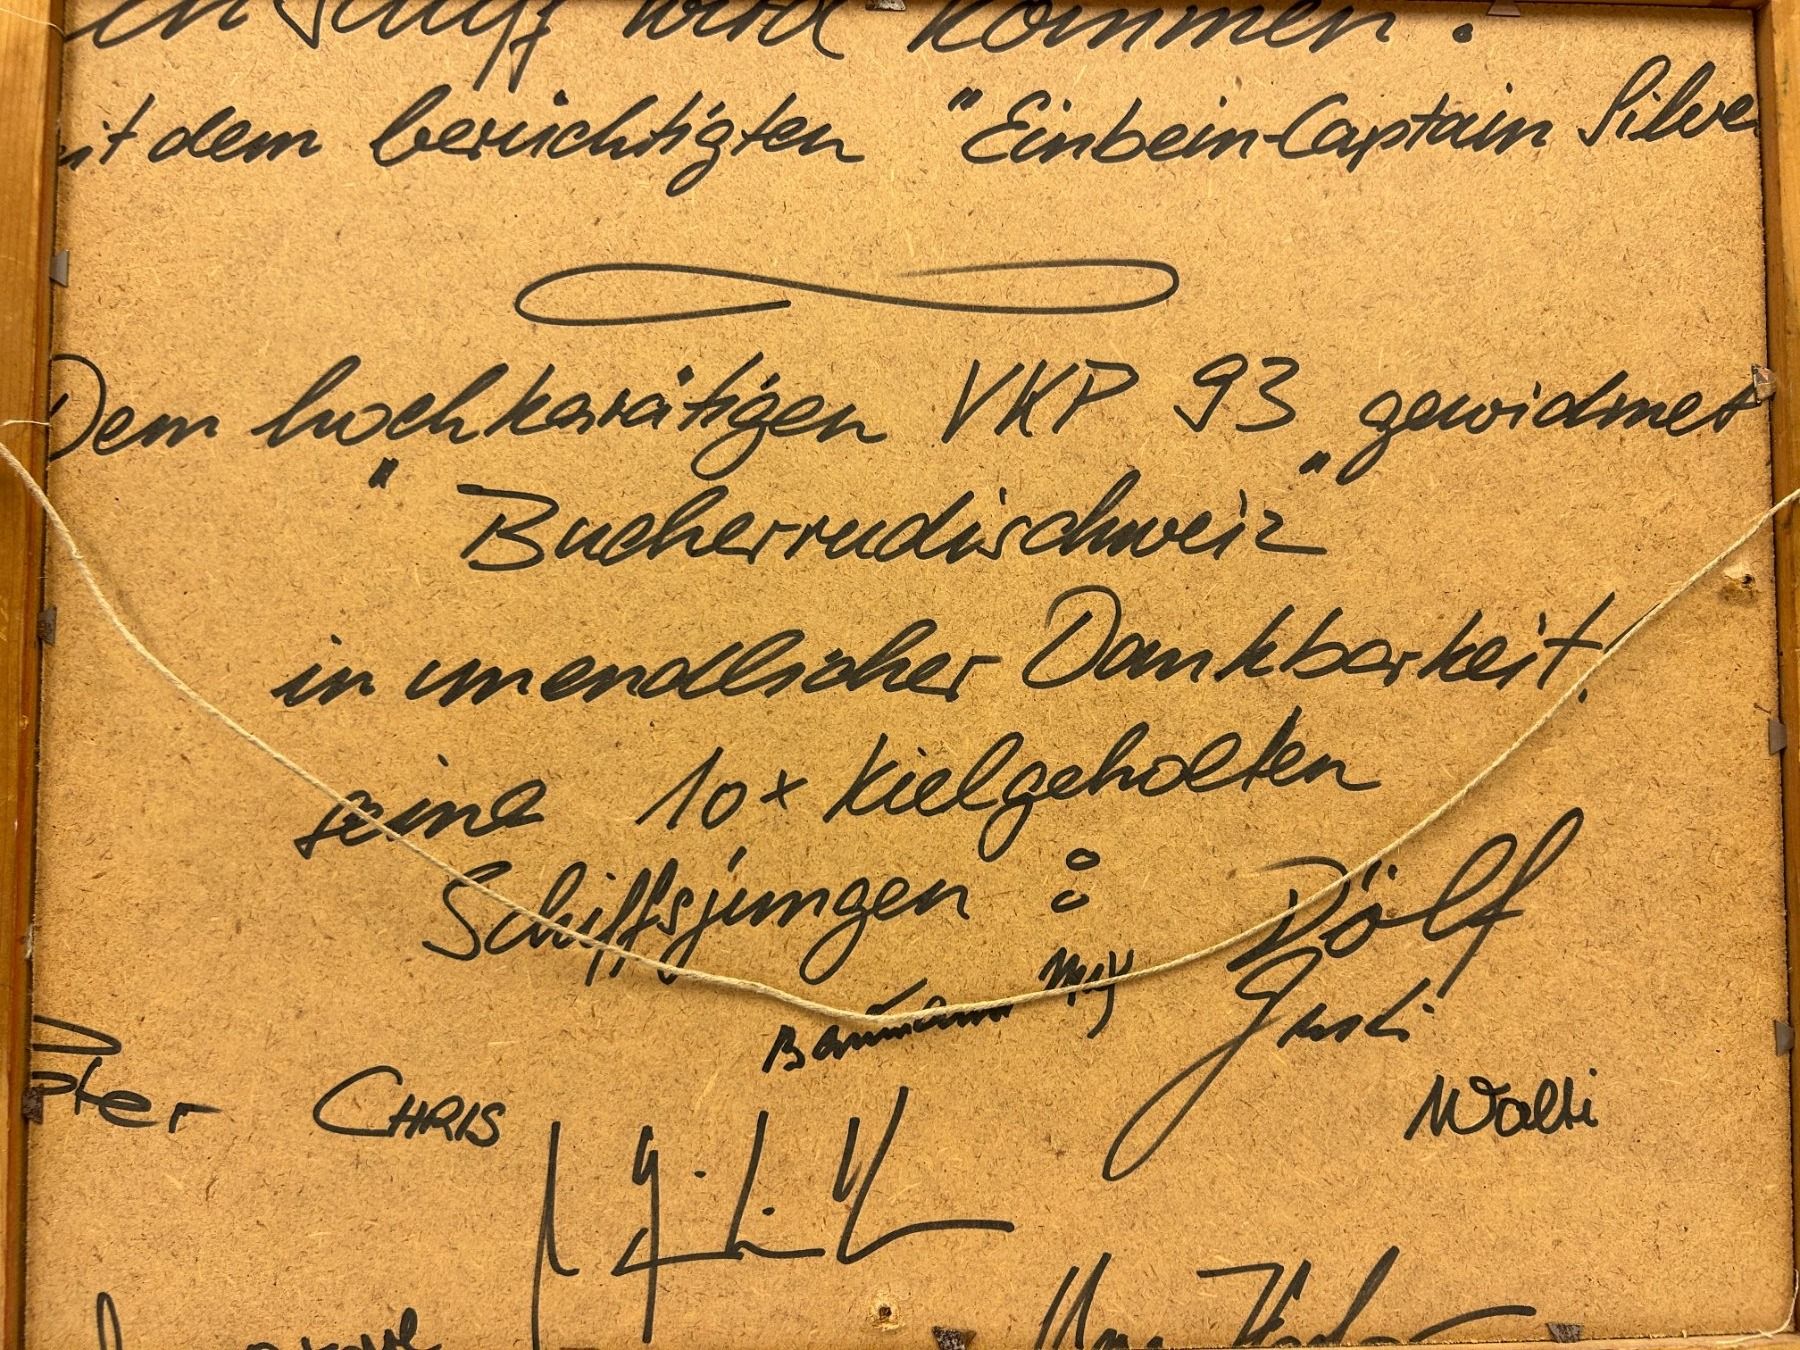 in Schiff wird kommen!
it dem berüchtigten "Einbein-Captain Silve
Dem hochkarätigen VKP 93 gewidmet
"Bucherrudischweiz"
in unendlicher Dankbarkeit!
seine 10x Kielgeholten
Schiffsjungen: Dölf
Baumann
Gusti
Peter CHRIS Walti